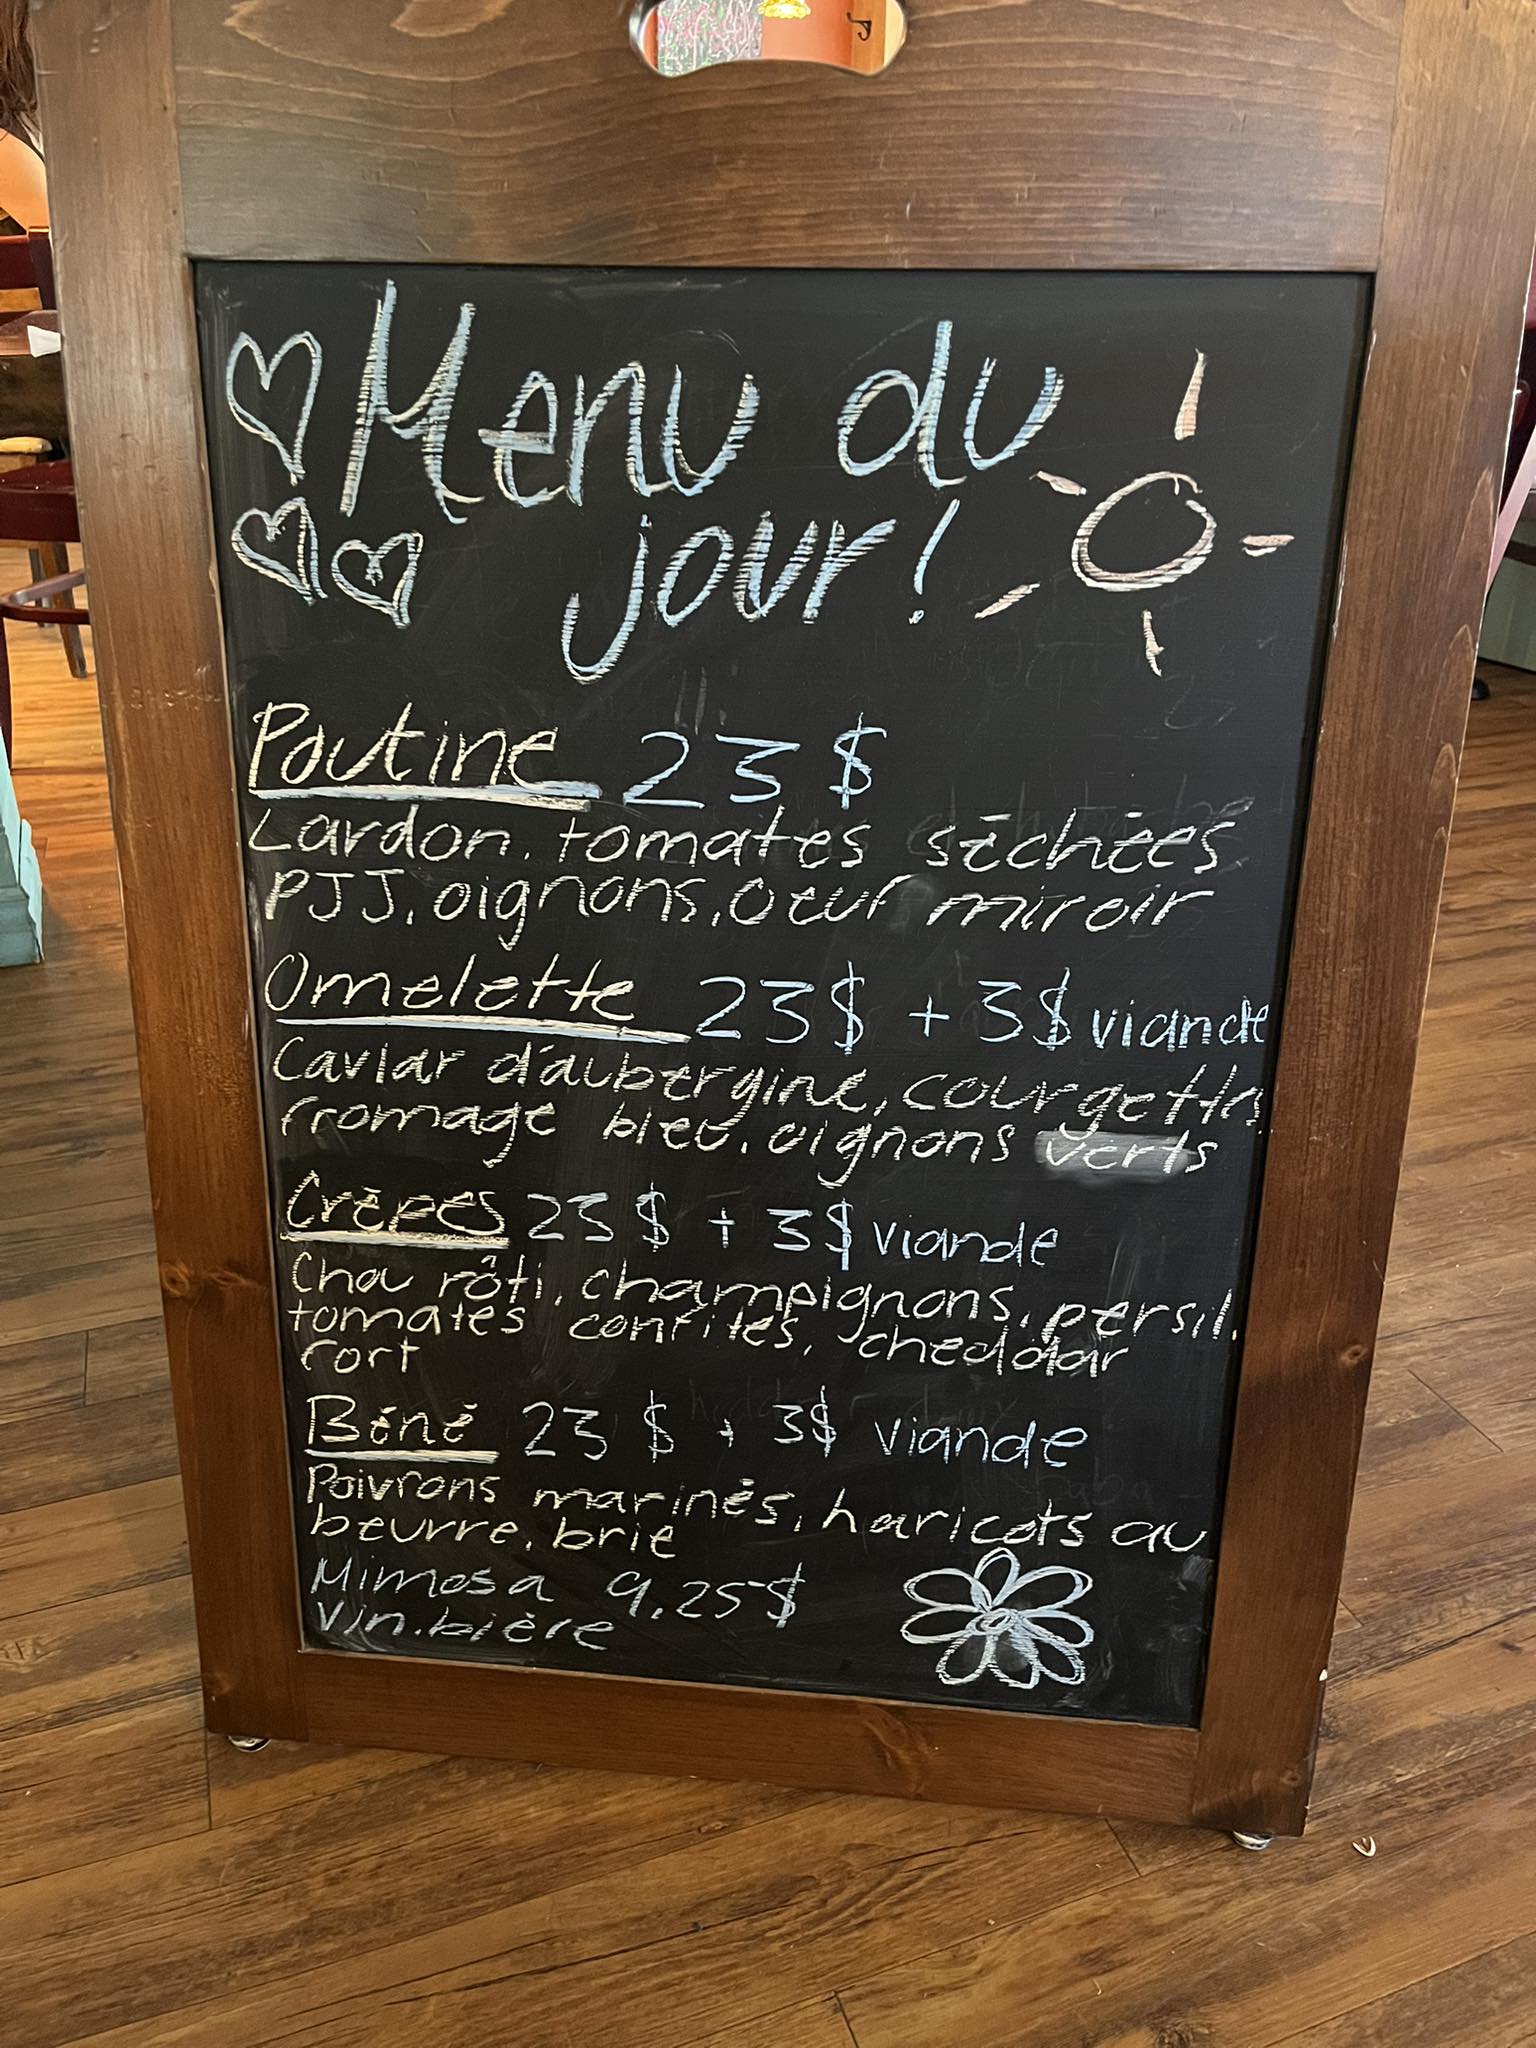 Menu du
jour!
Poutine 23$
Lardon, tomates séchées
PJJ, oignons, oeuf miroir
Omelette 23$ + 3$ viande
Caviar d'aubergine, courgettes,
fromage bleu, oignons verts
Crêpes 23$ + 3$ viande
Chou rôti, champignons, persil,
tomates confites, cheddar
fort
Béné 23$ + 3$ viande
Poivrons marinés, haricots au
beurre, brie
Mimosa 9,25$
Vin, bière